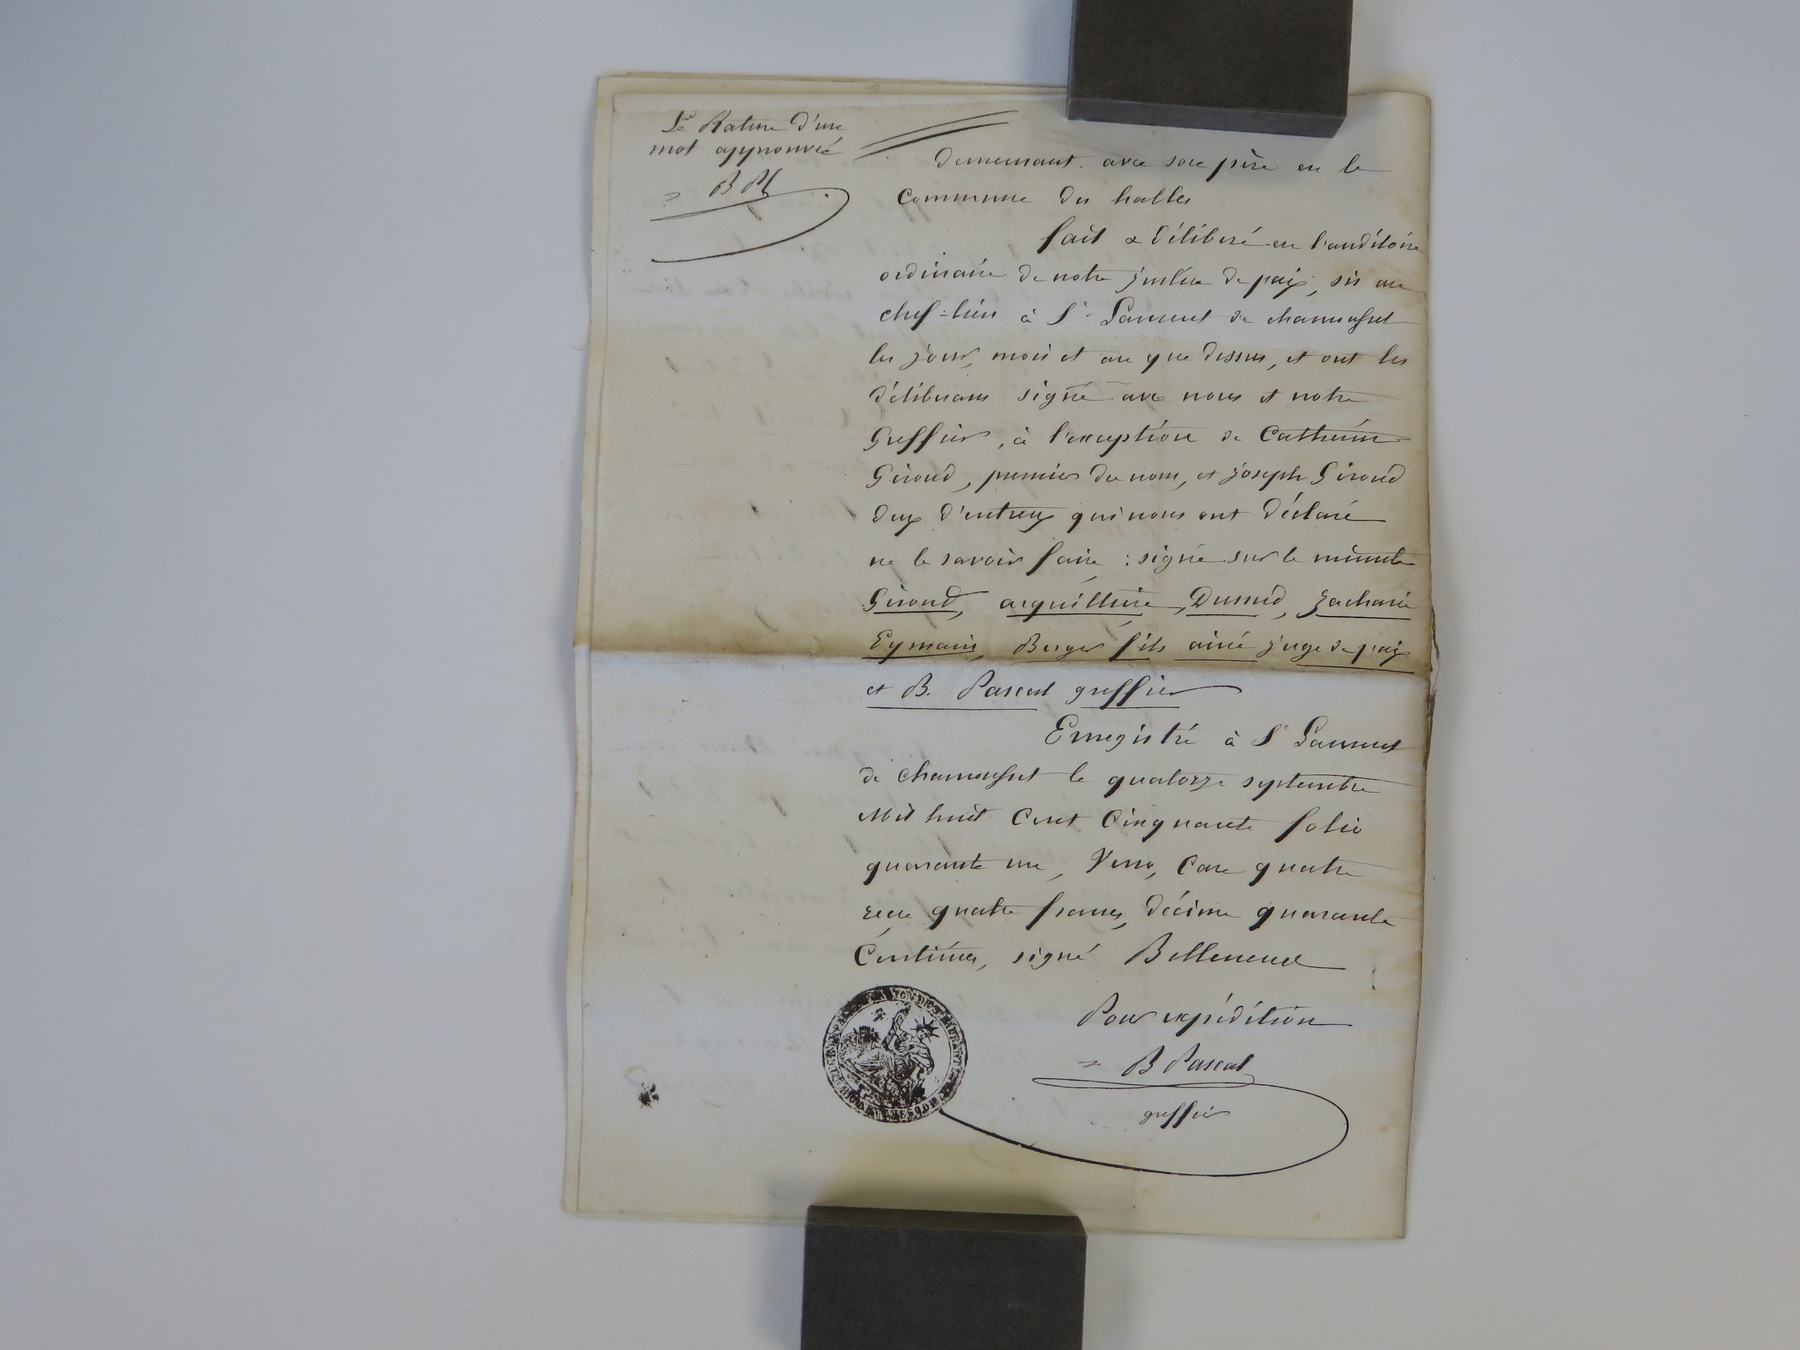 Le Rature d'un
mot approuvé
B Pl
demeurant avec son père en la
Commune des halles
fait & délibéré en l'auditoire
ordinaire de notre justice de paix, sis au
chef-lieu à St Laurent de chamousset
les jour, mois et an que dessus, et ont les
délibérans signé avec nous et notre
Greffier, à l'exception de Catherin
Giroud, premier du nom, et Joseph Giroud
deux d'entreux qui nous ont déclaré
ne le savoir faire : signé sur la minute
Giroud, arquilliere, Dumid, Zacharie
Eymain, Berger fils ainé juge de paix
et B. Pascal greffier
Enregistré à St Laurent
de chamousset le quatorze septembre
Mil huit Cent Cinquante folio
quarante un, Verso, Case quatre
reçu quatre francs, décime quarante
Centimes, signé
Pour expédition
B Pascal
greffier